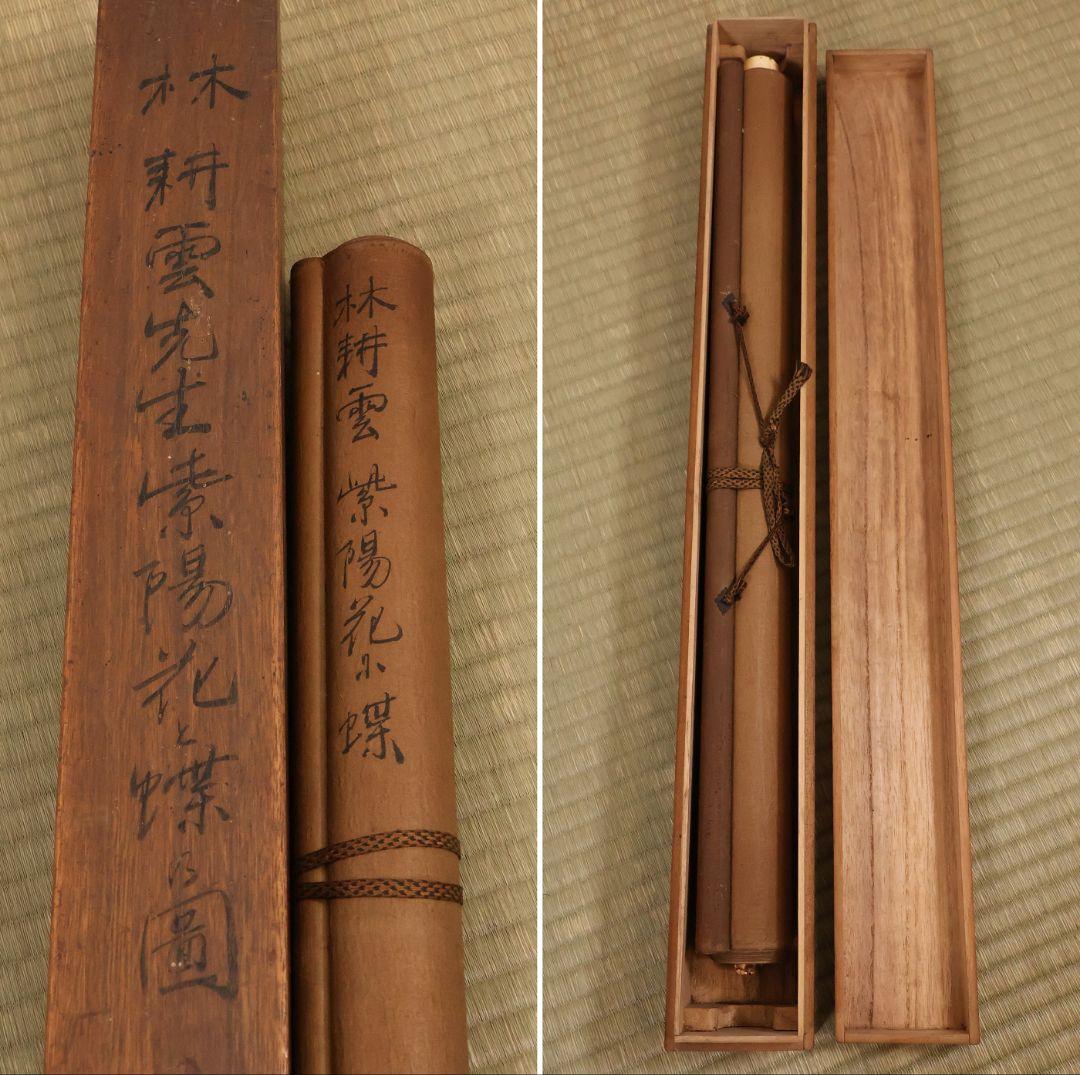 林耕雲先生紫陽花と蝶乃圖
林耕雲 紫陽花小蝶